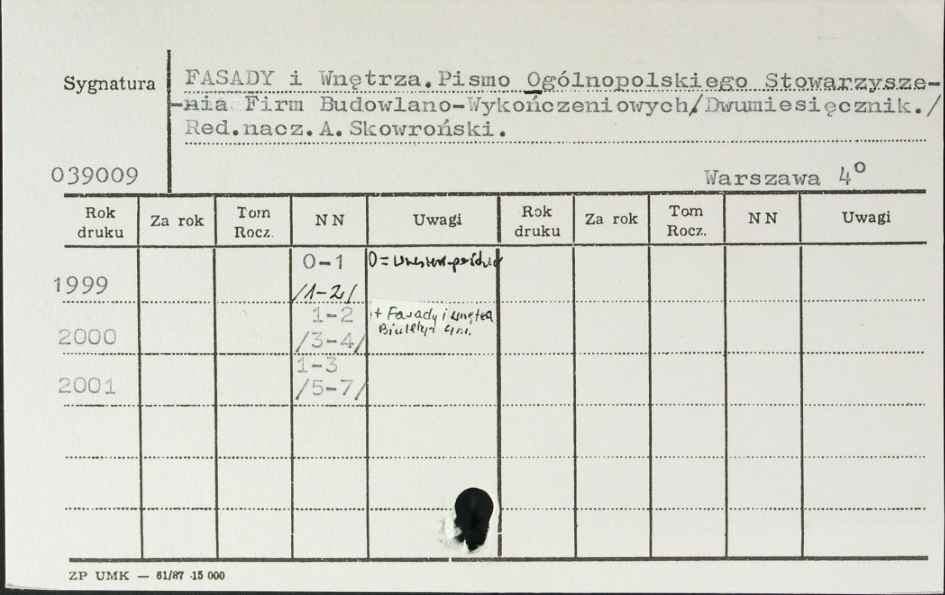 Sygnatura
FASADY i Wnętrza.Pismo Ogólnopolskiego Stowarzysze-
-nia Firm Budowlano-Wykończeniowych/Dwumiesięcznik./
Red.nacz.A.Skowroński.
039009
Warszawa 4º
Rok druku Za rok Tom Rocz. N N Uwagi Rok druku Za rok Tom Rocz. N N Uwagi
1999 0-1 0=
/1-2/
2000 1-2 + Fasady i wnętrza
/3-4/ Biuletyn
2001 1-3
/5-7/
ZP UMK — 61/87 15 000